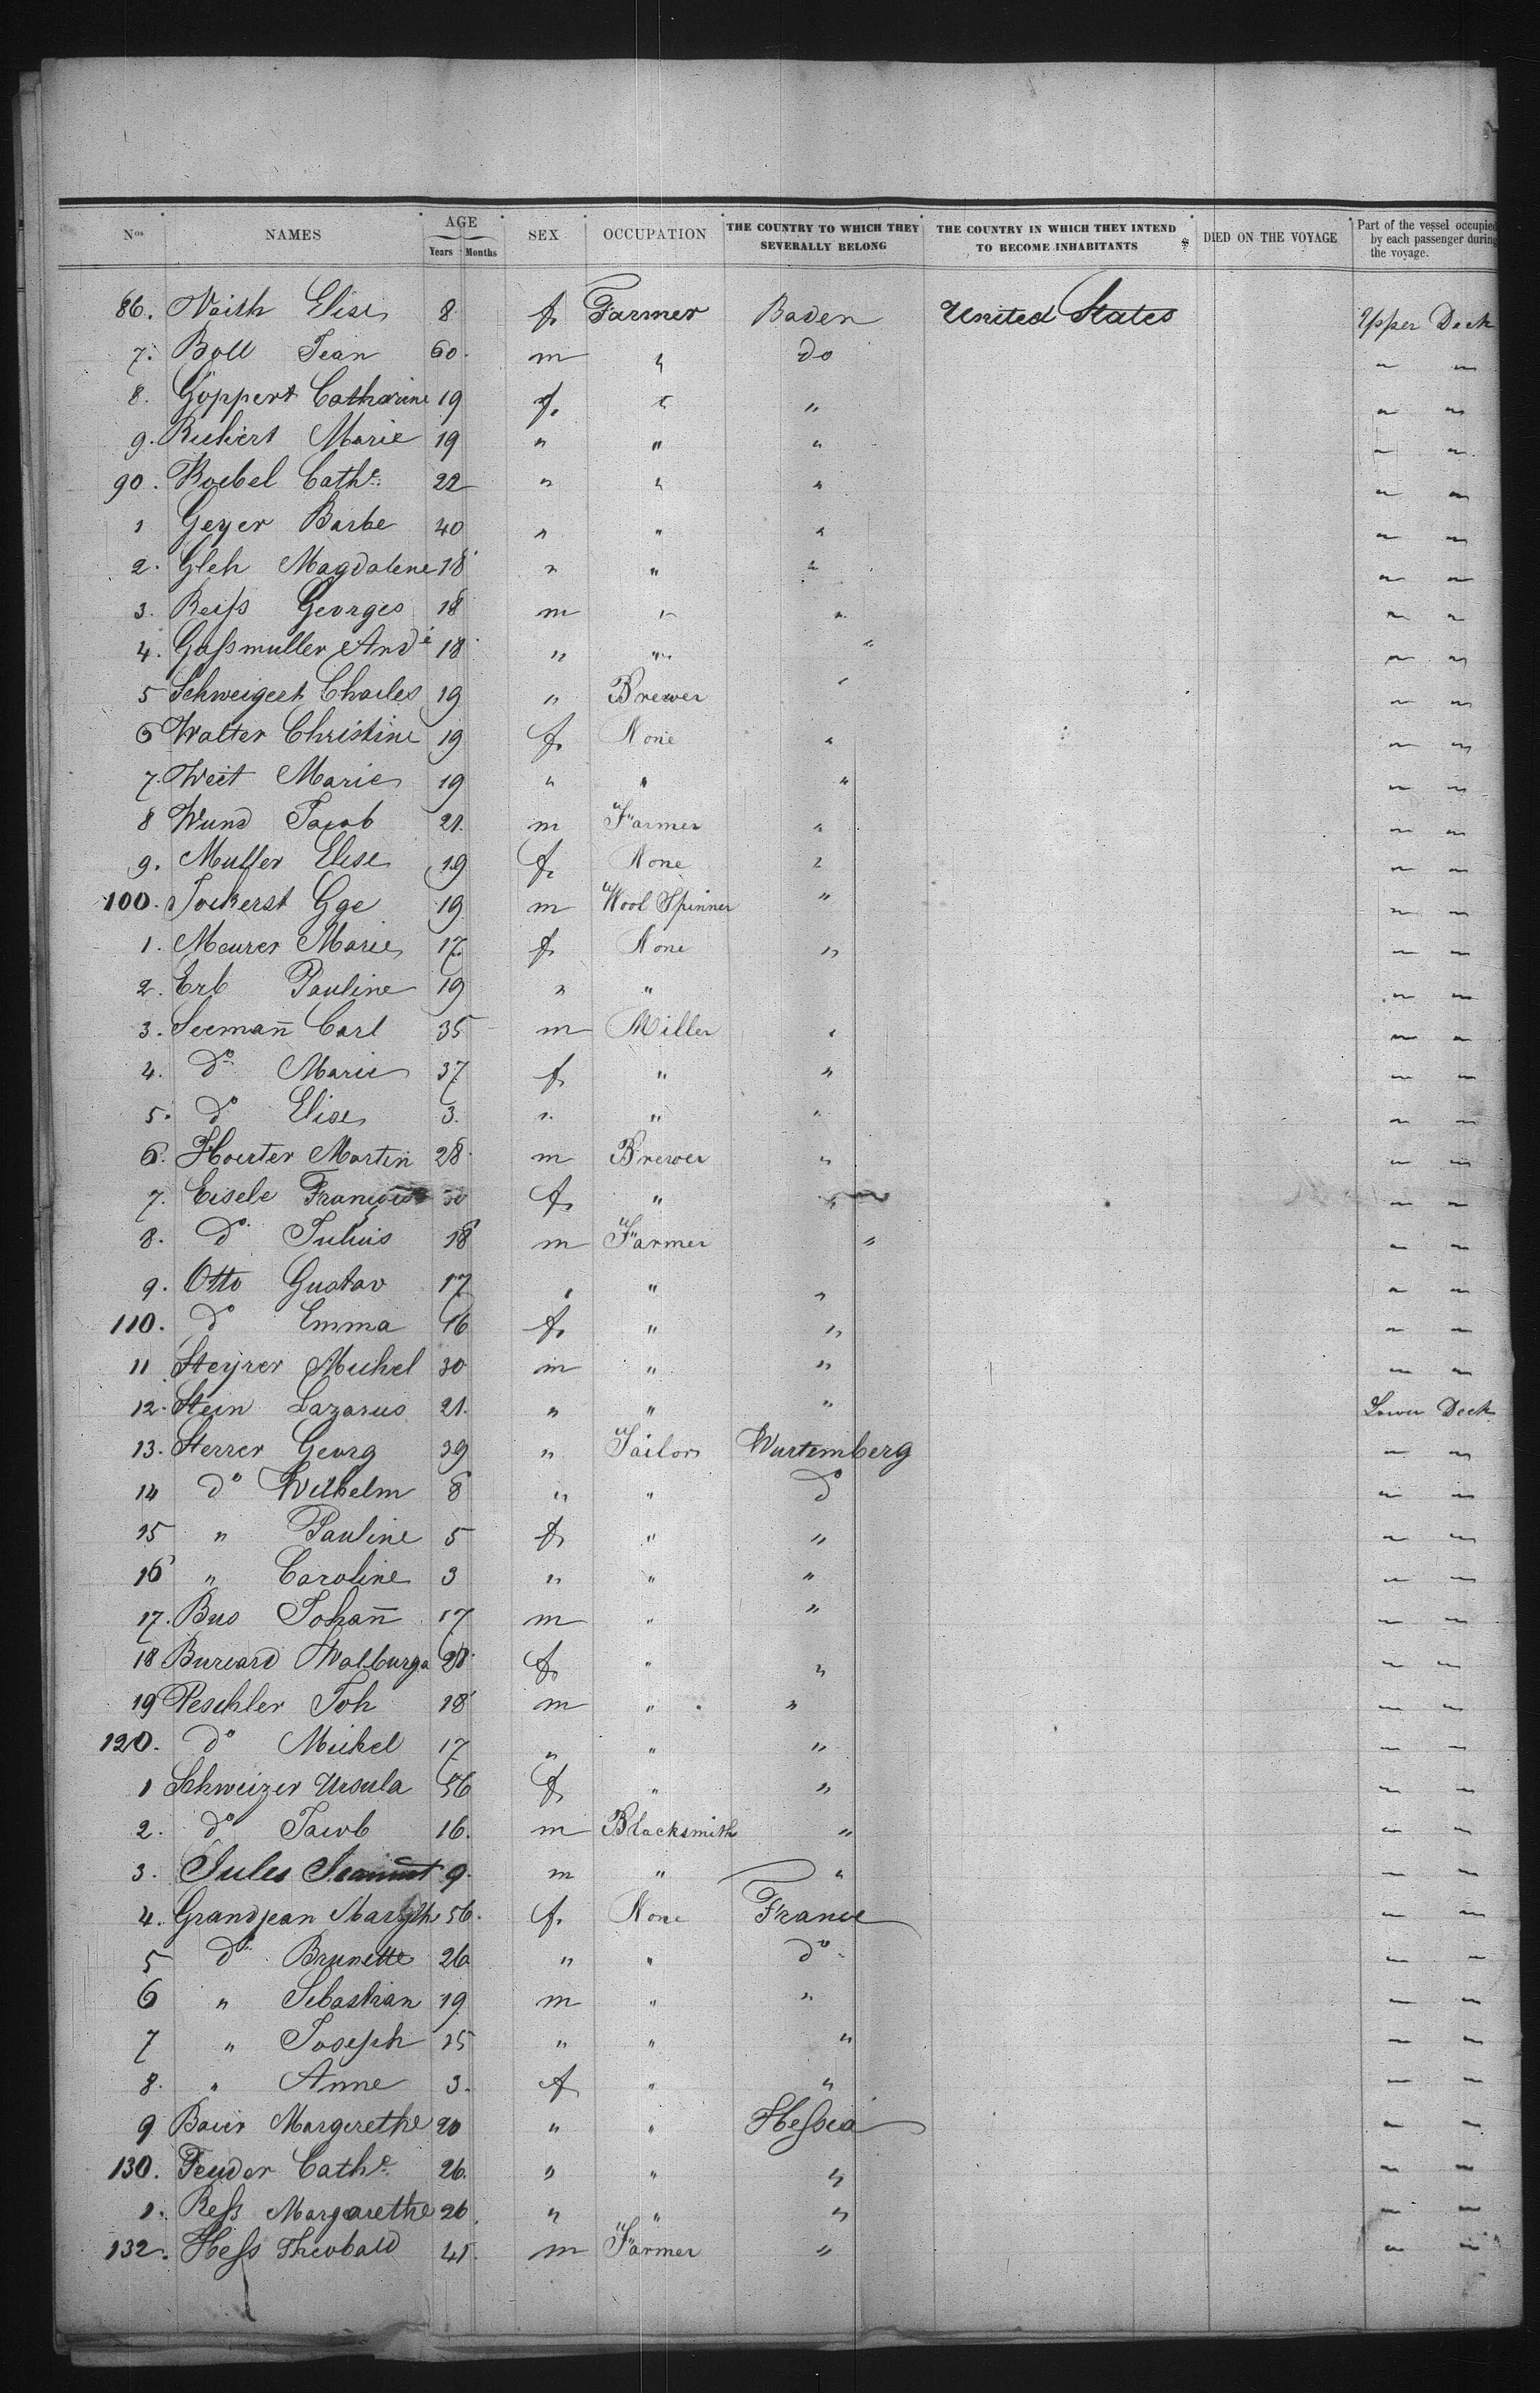 Nos NAMES AGE Years Months SEX OCCUPATION THE COUNTRY TO WHICH THEY SEVERALLY BELONG THE COUNTRY IN WHICH THEY INTEND TO BECOME INHABITANTS DIED ON THE VOYAGE Part of the vessel occupied by each passenger during the voyage.
86. Elise 8 f. Farmer Baden United States Upper Deck
7. Boll Jean 60. m " do " "
8. Göppert Catharine 19 f. " " " "
9. Marie 19 " " " " "
90. Cathe. 22 " " " " "
1 Geyer Barbe 40 " " " " "
2. Magdalene 18 " " " " "
3. Reiss Georges 18 m " " " "
4. Gassmuller 18 " " " " "
5 Charles 19 " Brewer " " "
6 Walter Christine 19 f. None " " "
7. Weit Marie 19 " " " " "
8 Wund Jacob 21. m Farmer " " "
9. Muller Elise 19 f. None " " "
100. Jockerst Gge 19 m Wool Spinner " " "
1. Meurer Marie 17. f. None " " "
2. Erb Pauline 19 " " " "
3. Seemañ Carl 35 m Miller " " "
4. do Marie 37 f. " " " "
5. do Elise 3. " " " " "
6. Hoerter Martin 28 m Brewer " " "
7. Eisele 30 f. " " " "
8. do Julius 18 m Farmer " " "
9. Otto Gustav 17 " " " " "
110. do Emma 16 f. " " " "
11 Steyrer Michel 30 m " " " "
12. Stein Lazarus 21. " " " Lower Deck
13. Sterrer Georg 39 " Tailor Wurtemberg " "
14 do Wilhelm 8 " " do " "
15 " Pauline 5 f. " " " "
16 " Caroline 3 " " " " "
17. Johañ 17 m " " " "
18 Walburga 28 f. " " " "
19 Peschler Joh 18 m " " " "
120. do Michel 17 " " " " "
1 Schweizer Ursula 56 f. " " " "
2. do Jacob 16. m Blacksmith " " "
3. Jules 9. m " " " "
4. Grandjean 56. f. None France " "
5 do Brunette 26 " " do " "
6 " Sebastian 19 m " " " "
7 " Joseph 15 " " " " "
8. " Anne 3. f. " " " "
9 Margerethe 20 " " Hessia " "
130. Feuder Cathe. 26. " " " " "
1. Ress Margarethe 26. " " " " "
132. Hess Theobald 45. m Farmer " " "